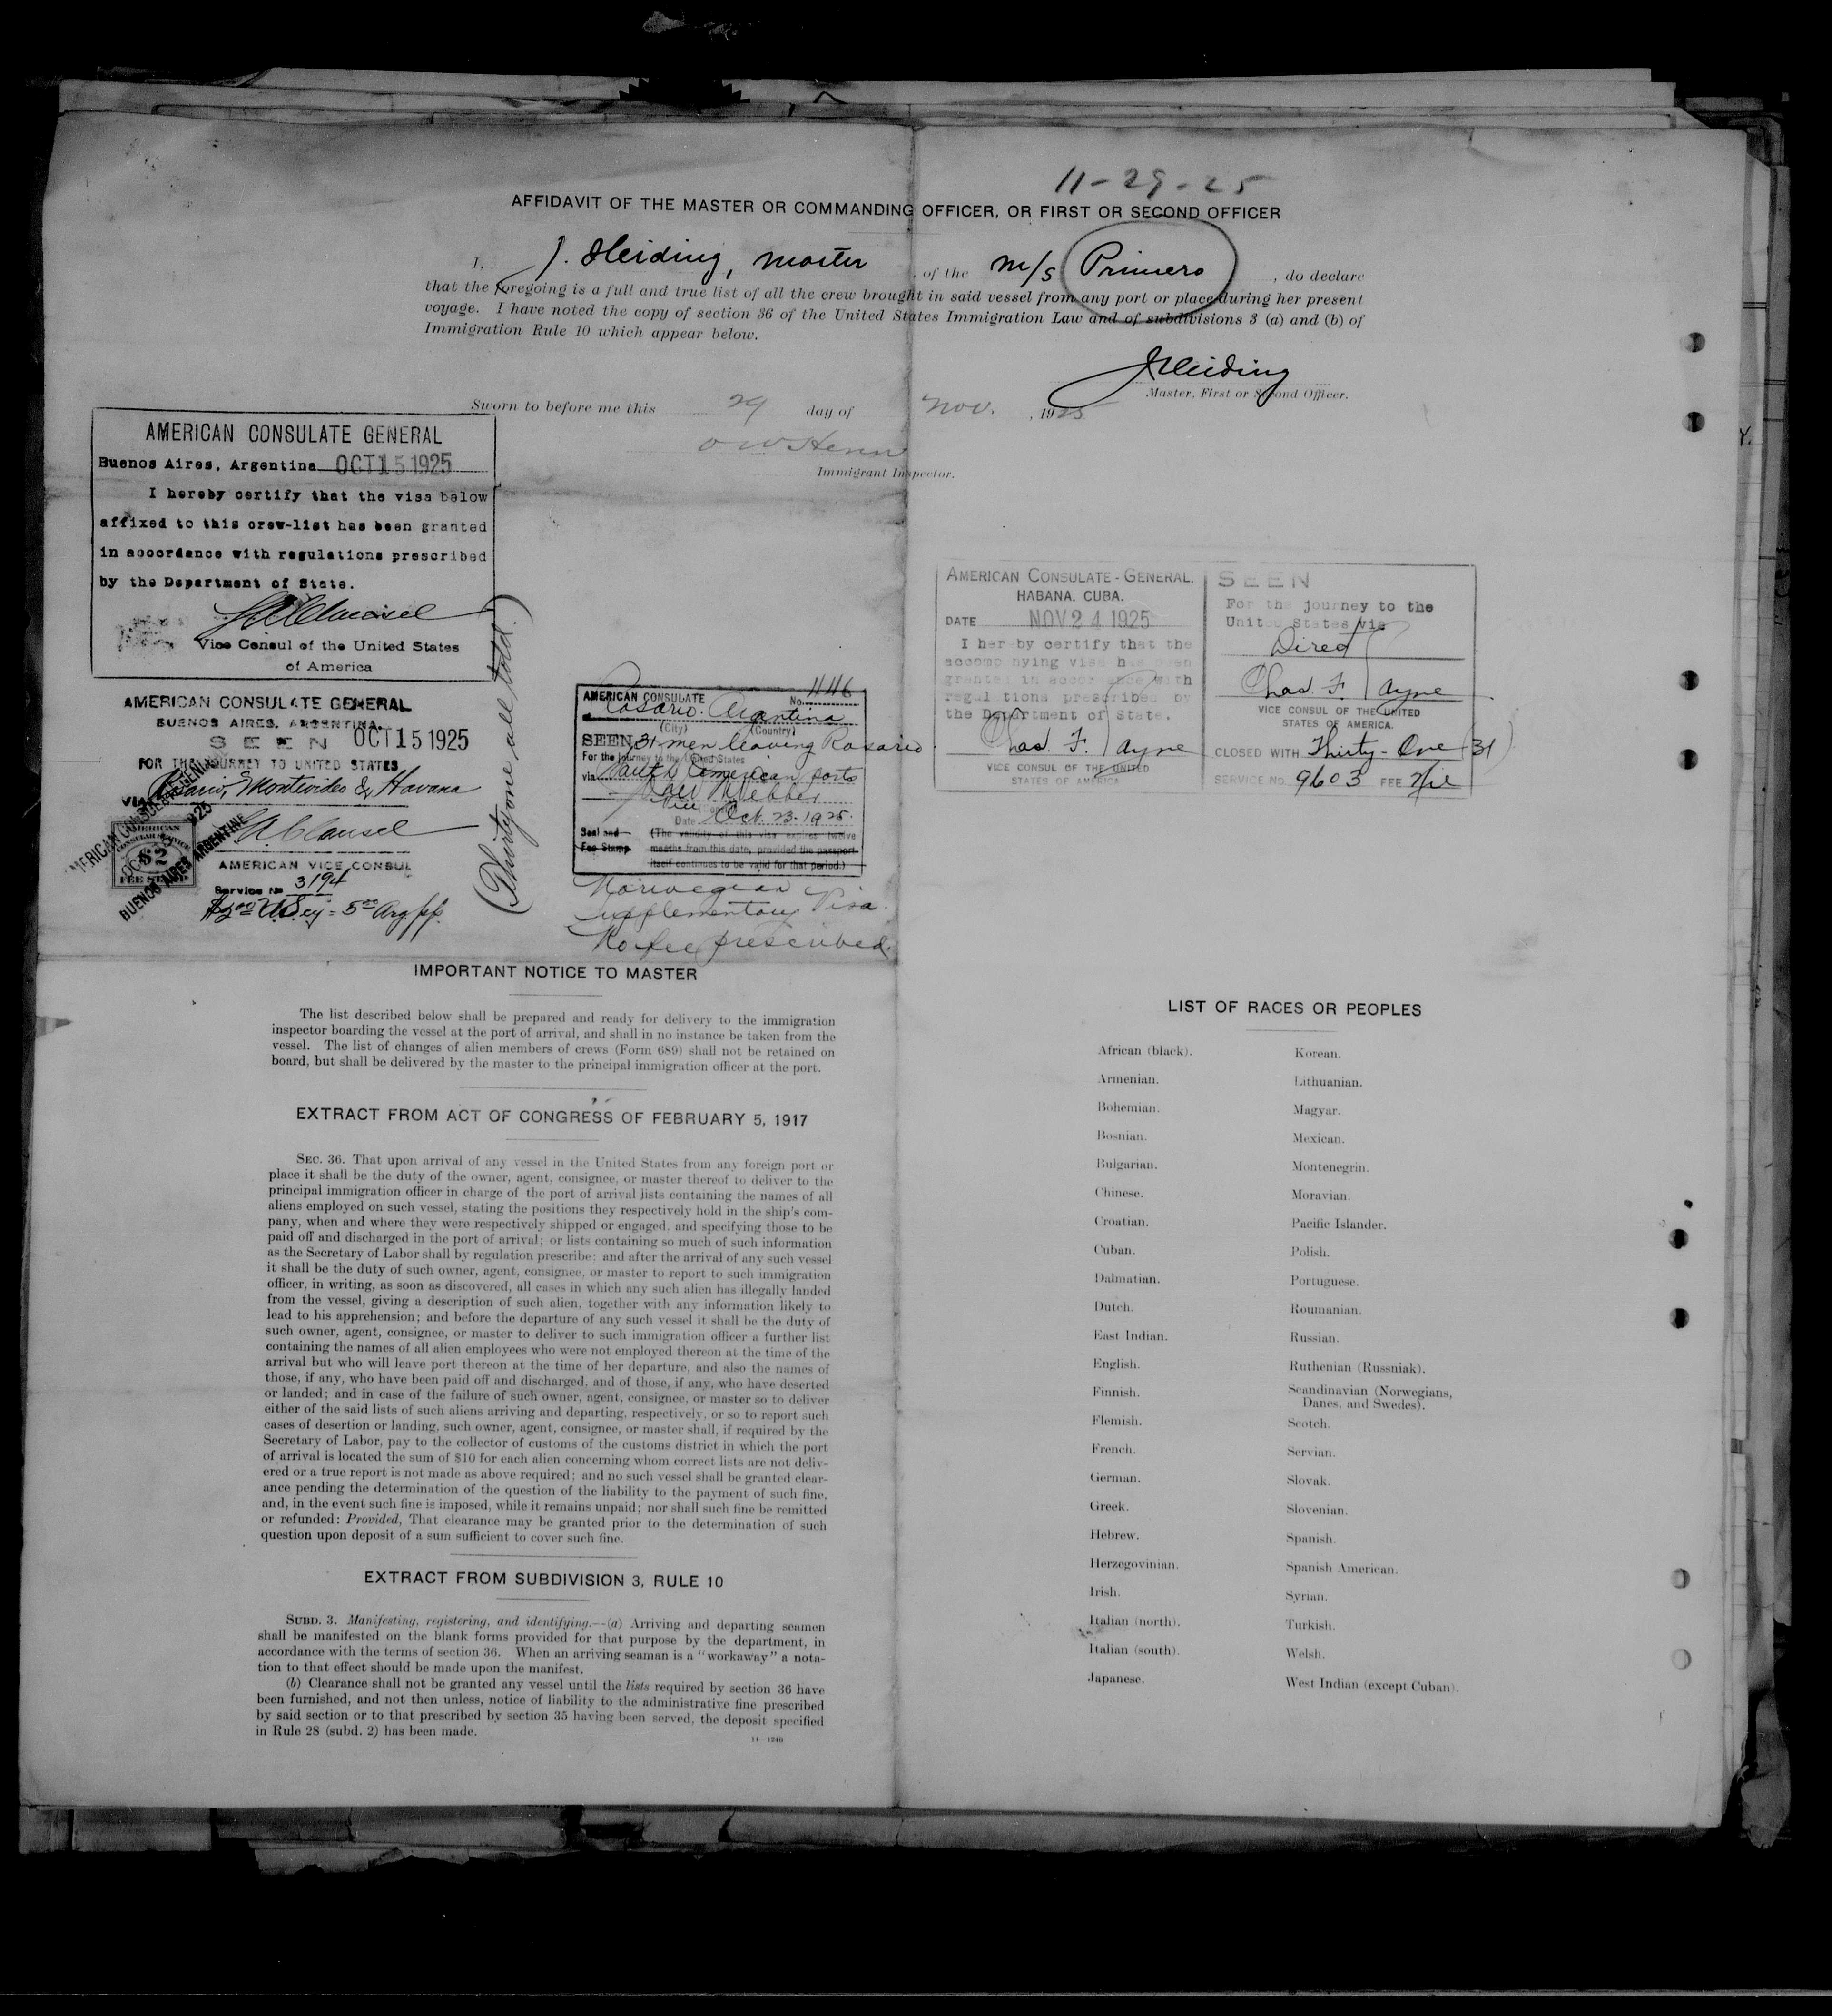 11-29-25
AFFIDAVIT OF THE MASTER OR COMMANDING OFFICER, OR FIRST OR SECOND OFFICER
I, J. Heiding, master, of the m/s Primero, do declare
that the foregoing is a full and true list of all the crew brought in said vessel from any port or place during her present
voyage. I have noted the copy of section 36 of the United States Immigration Law and of subdivisions 3 (a) and (b) of
Immigration Rule 10 which appear below.
JHeiding
Master, First or Second Officer.
Sworn to before me this 29 day of Nov., 1925
Immigrant Inspector.
AMERICAN CONSULATE GENERAL
Buenos Aires, Argentina OCT 15 1925
I hereby certify that the visa below
affixed to this crew-list has been granted
in accordance with regulations prescribed
by the Department of State.
Vice Consul of the United States
of America
AMERICAN CONSULATE GENERAL
BUENOS AIRES, ARGENTINA.
SEEN OCT 15 1925
FOR THE JOURNEY TO UNITED STATES
VIA Rosario, Montevideo & Havana
AMERICAN
CONSULAR SERVICE
$2
FEE STAMP
BUENOS AIRES ARGENTINE
AMERICAN VICE CONSUL
Service № 3194
(Thirty one all told.)
AMERICAN CONSULATE No. 446
Rosario. Argentina
(City) (Country)
SEEN, 31 men leaving Rosario
For the journey to the United States
via South American ports
Date Oct. 23. 1925.
Seal and
Fee Stamp
(The validity of this visa expires twelve
months from this date, provided the passport
itself continues to be valid for that period.)
Norwegian
Supplementary Visa.
No fee prescribed.
AMERICAN CONSULATE-GENERAL.
HABANA. CUBA.
DATE NOV 24 1925
I her by certify that the
accomp nying visa has been
granted in accordance with
regul tions prescribed by
the Department of State.
Chas. F. Payne
VICE CONSUL OF THE UNITED
STATES OF AMERICA.
SEEN
For the journey to the
United States via
Direct
Chas. F. Payne
VICE CONSUL OF THE UNITED
STATES OF AMERICA.
CLOSED WITH Thirty-One (31)
SERVICE NO. 9603 FEE Nil
IMPORTANT NOTICE TO MASTER
The list described below shall be prepared and ready for delivery to the immigration
inspector boarding the vessel at the port of arrival, and shall in no instance be taken from the
vessel. The list of changes of alien members of crews (Form 689) shall not be retained on
board, but shall be delivered by the master to the principal immigration officer at the port.
EXTRACT FROM ACT OF CONGRESS OF FEBRUARY 5, 1917
SEC. 36. That upon arrival of any vessel in the United States from any foreign port or
place it shall be the duty of the owner, agent, consignee, or master thereof to deliver to the
principal immigration officer in charge of the port of arrival lists containing the names of all
aliens employed on such vessel, stating the positions they respectively hold in the ship's com-
pany, when and where they were respectively shipped or engaged, and specifying those to be
paid off and discharged in the port of arrival; or lists containing so much of such information
as the Secretary of Labor shall by regulation prescribe; and after the arrival of any such vessel
it shall be the duty of such owner, agent, consignee, or master to report to such immigration
officer, in writing, as soon as discovered, all cases in which any such alien has illegally landed
from the vessel, giving a description of such alien, together with any information likely to
lead to his apprehension; and before the departure of any such vessel it shall be the duty of
such owner, agent, consignee, or master to deliver to such immigration officer a further list
containing the names of all alien employees who were not employed thereon at the time of the
arrival but who will leave port thereon at the time of her departure, and also the names of
those, if any, who have been paid off and discharged, and of those, if any, who have deserted
or landed; and in case of the failure of such owner, agent, consignee, or master so to deliver
either of the said lists of such aliens arriving and departing, respectively, or so to report such
cases of desertion or landing, such owner, agent, consignee, or master shall, if required by the
Secretary of Labor, pay to the collector of customs of the customs district in which the port
of arrival is located the sum of $10 for each alien concerning whom correct lists are not deliv-
ered or a true report is not made as above required; and no such vessel shall be granted clear-
ance pending the determination of the question of the liability to the payment of such fine,
and, in the event such fine is imposed, while it remains unpaid; nor shall such fine be remitted
or refunded: Provided, That clearance may be granted prior to the determination of such
question upon deposit of a sum sufficient to cover such fine.
EXTRACT FROM SUBDIVISION 3, RULE 10
SUBD. 3. Manifesting, registering, and identifying.—(a) Arriving and departing seamen
shall be manifested on the blank forms provided for that purpose by the department, in
accordance with the terms of section 36. When an arriving seaman is a "workaway" a nota-
tion to that effect should be made upon the manifest.
(b) Clearance shall not be granted any vessel until the lists required by section 36 have
been furnished, and not then unless, notice of liability to the administrative fine prescribed
by said section or to that prescribed by section 35 having been served, the deposit specified
in Rule 28 (subd. 2) has been made.
14—1240
LIST OF RACES OR PEOPLES
African (black).
Armenian.
Bohemian.
Bosnian.
Bulgarian.
Chinese.
Croatian.
Cuban.
Dalmatian.
Dutch.
East Indian.
English.
Finnish.
Flemish.
French.
German.
Greek.
Hebrew.
Herzegovinian.
Irish.
Italian (north).
Italian (south).
Japanese.
Korean.
Lithuanian.
Magyar.
Mexican.
Montenegrin.
Moravian.
Pacific Islander.
Polish.
Portuguese.
Roumanian.
Russian.
Ruthenian (Russniak).
Scandinavian (Norwegians,
Danes, and Swedes).
Scotch.
Servian.
Slovak.
Slovenian.
Spanish.
Spanish American.
Syrian.
Turkish.
Welsh.
West Indian (except Cuban).